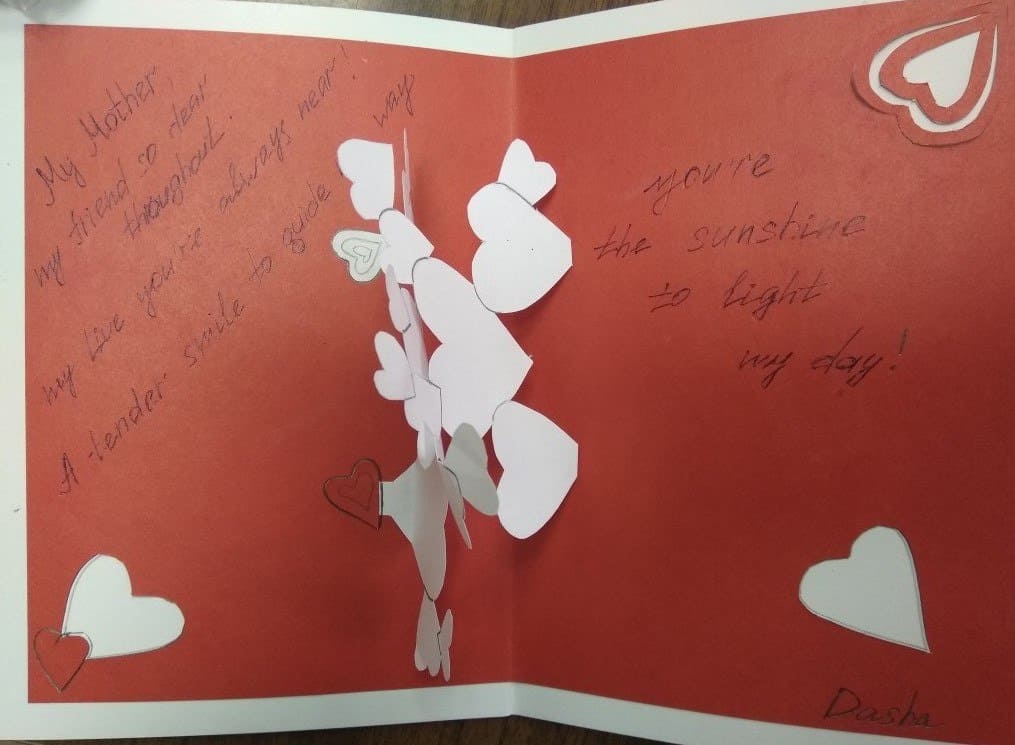 My Mother
my friend so dear
throughout.
my live you're always near!
A tender smile to guide way
you're
the sunshine
to light
my day!
Dasha